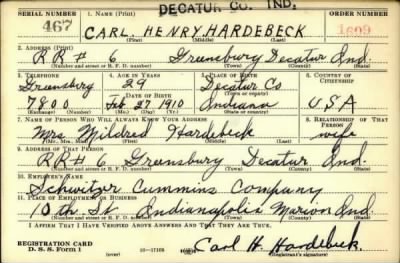 DECATUR CO. IND.
SERIAL NUMBER 1. NAME (Print) ORDER NUMBER
467 CARL. HENRY. HARDEBECK 1609
(First) (Middle) (Last)
2. ADDRESS (Print)
RR# 6 Greensburg Decatur Ind.
(Number and street or R. F. D. number) (Town) (County) (State)
3. TELEPHONE 4. AGE IN YEARS 5. PLACE OF BIRTH 6. COUNTRY OF CITIZENSHIP
Greensburg 29 Decatur Co
DATE OF BIRTH (Town or county)
7800 Feb 27 1910 Indiana USA
(Exchange) (Number) (Mo.) (Day) (Yr.) (State or country)
7. NAME OF PERSON WHO WILL ALWAYS KNOW YOUR ADDRESS 8. RELATIONSHIP OF THAT PERSON
Mrs. Mildred Hardebeck wife
(Mr., Mrs., Miss) (First) (Middle) (Last)
9. ADDRESS OF THAT PERSON
RR#6 Greensburg Decatur Ind.
(Number and street or R. F. D. number) (Town) (County) (State)
10. EMPLOYER'S NAME
Schwitzer Cummins Company
11. PLACE OF EMPLOYMENT OR BUSINESS
10th St Indianapolis Marion Ind.
(Number and street or R. F. D. number) (Town) (County) (State)
I AFFIRM THAT I HAVE VERIFIED ABOVE ANSWERS AND THAT THEY ARE TRUE.
REGISTRATION CARD
D. S. S. Form 1 (over) Carl H. Hardebeck.
(Registrant's signature)